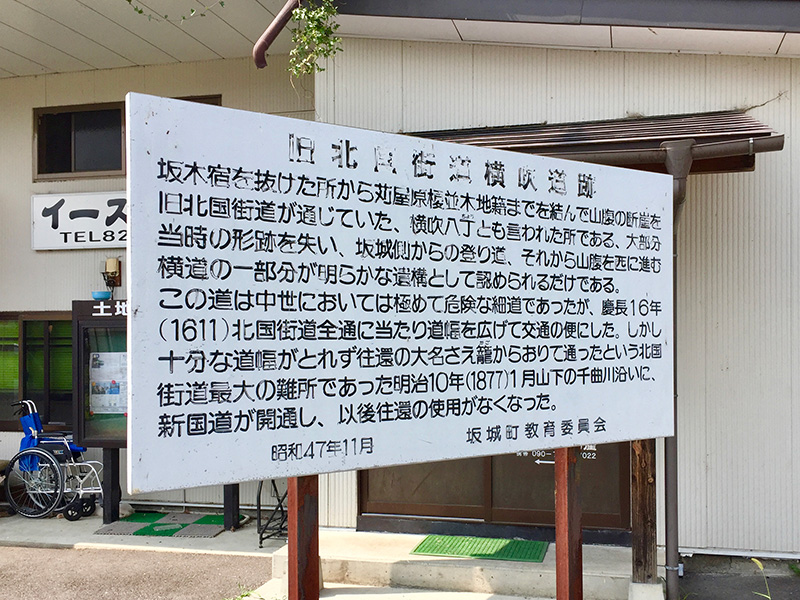 旧北国街道横吹道跡
坂木宿を抜けた所から苅屋原榎並木地籍までを結んで山腹の断崖を
旧北国街道が通じていた、横吹八丁とも言われた所である、大部分
当時の形跡を失い、坂城側からの登り道、それから山腹を西に進む
横道の一部分が明らかな遺構として認められるだけである。
この道は中世においては極めて危険な細道であったが、慶長16年
(1611)北国街道全通に当たり道幅を広げて交通の便にした。しかし
十分な道幅がとれず往還の大名さえ籠からおりて通ったという北国
街道最大の難所であった明治10年(1877)1月山下の千曲川沿いに、
新国道が開通し、以後往還の使用がなくなった。
昭和47年11月 坂城町教育委員会
イース
TEL82
土地
090-
022